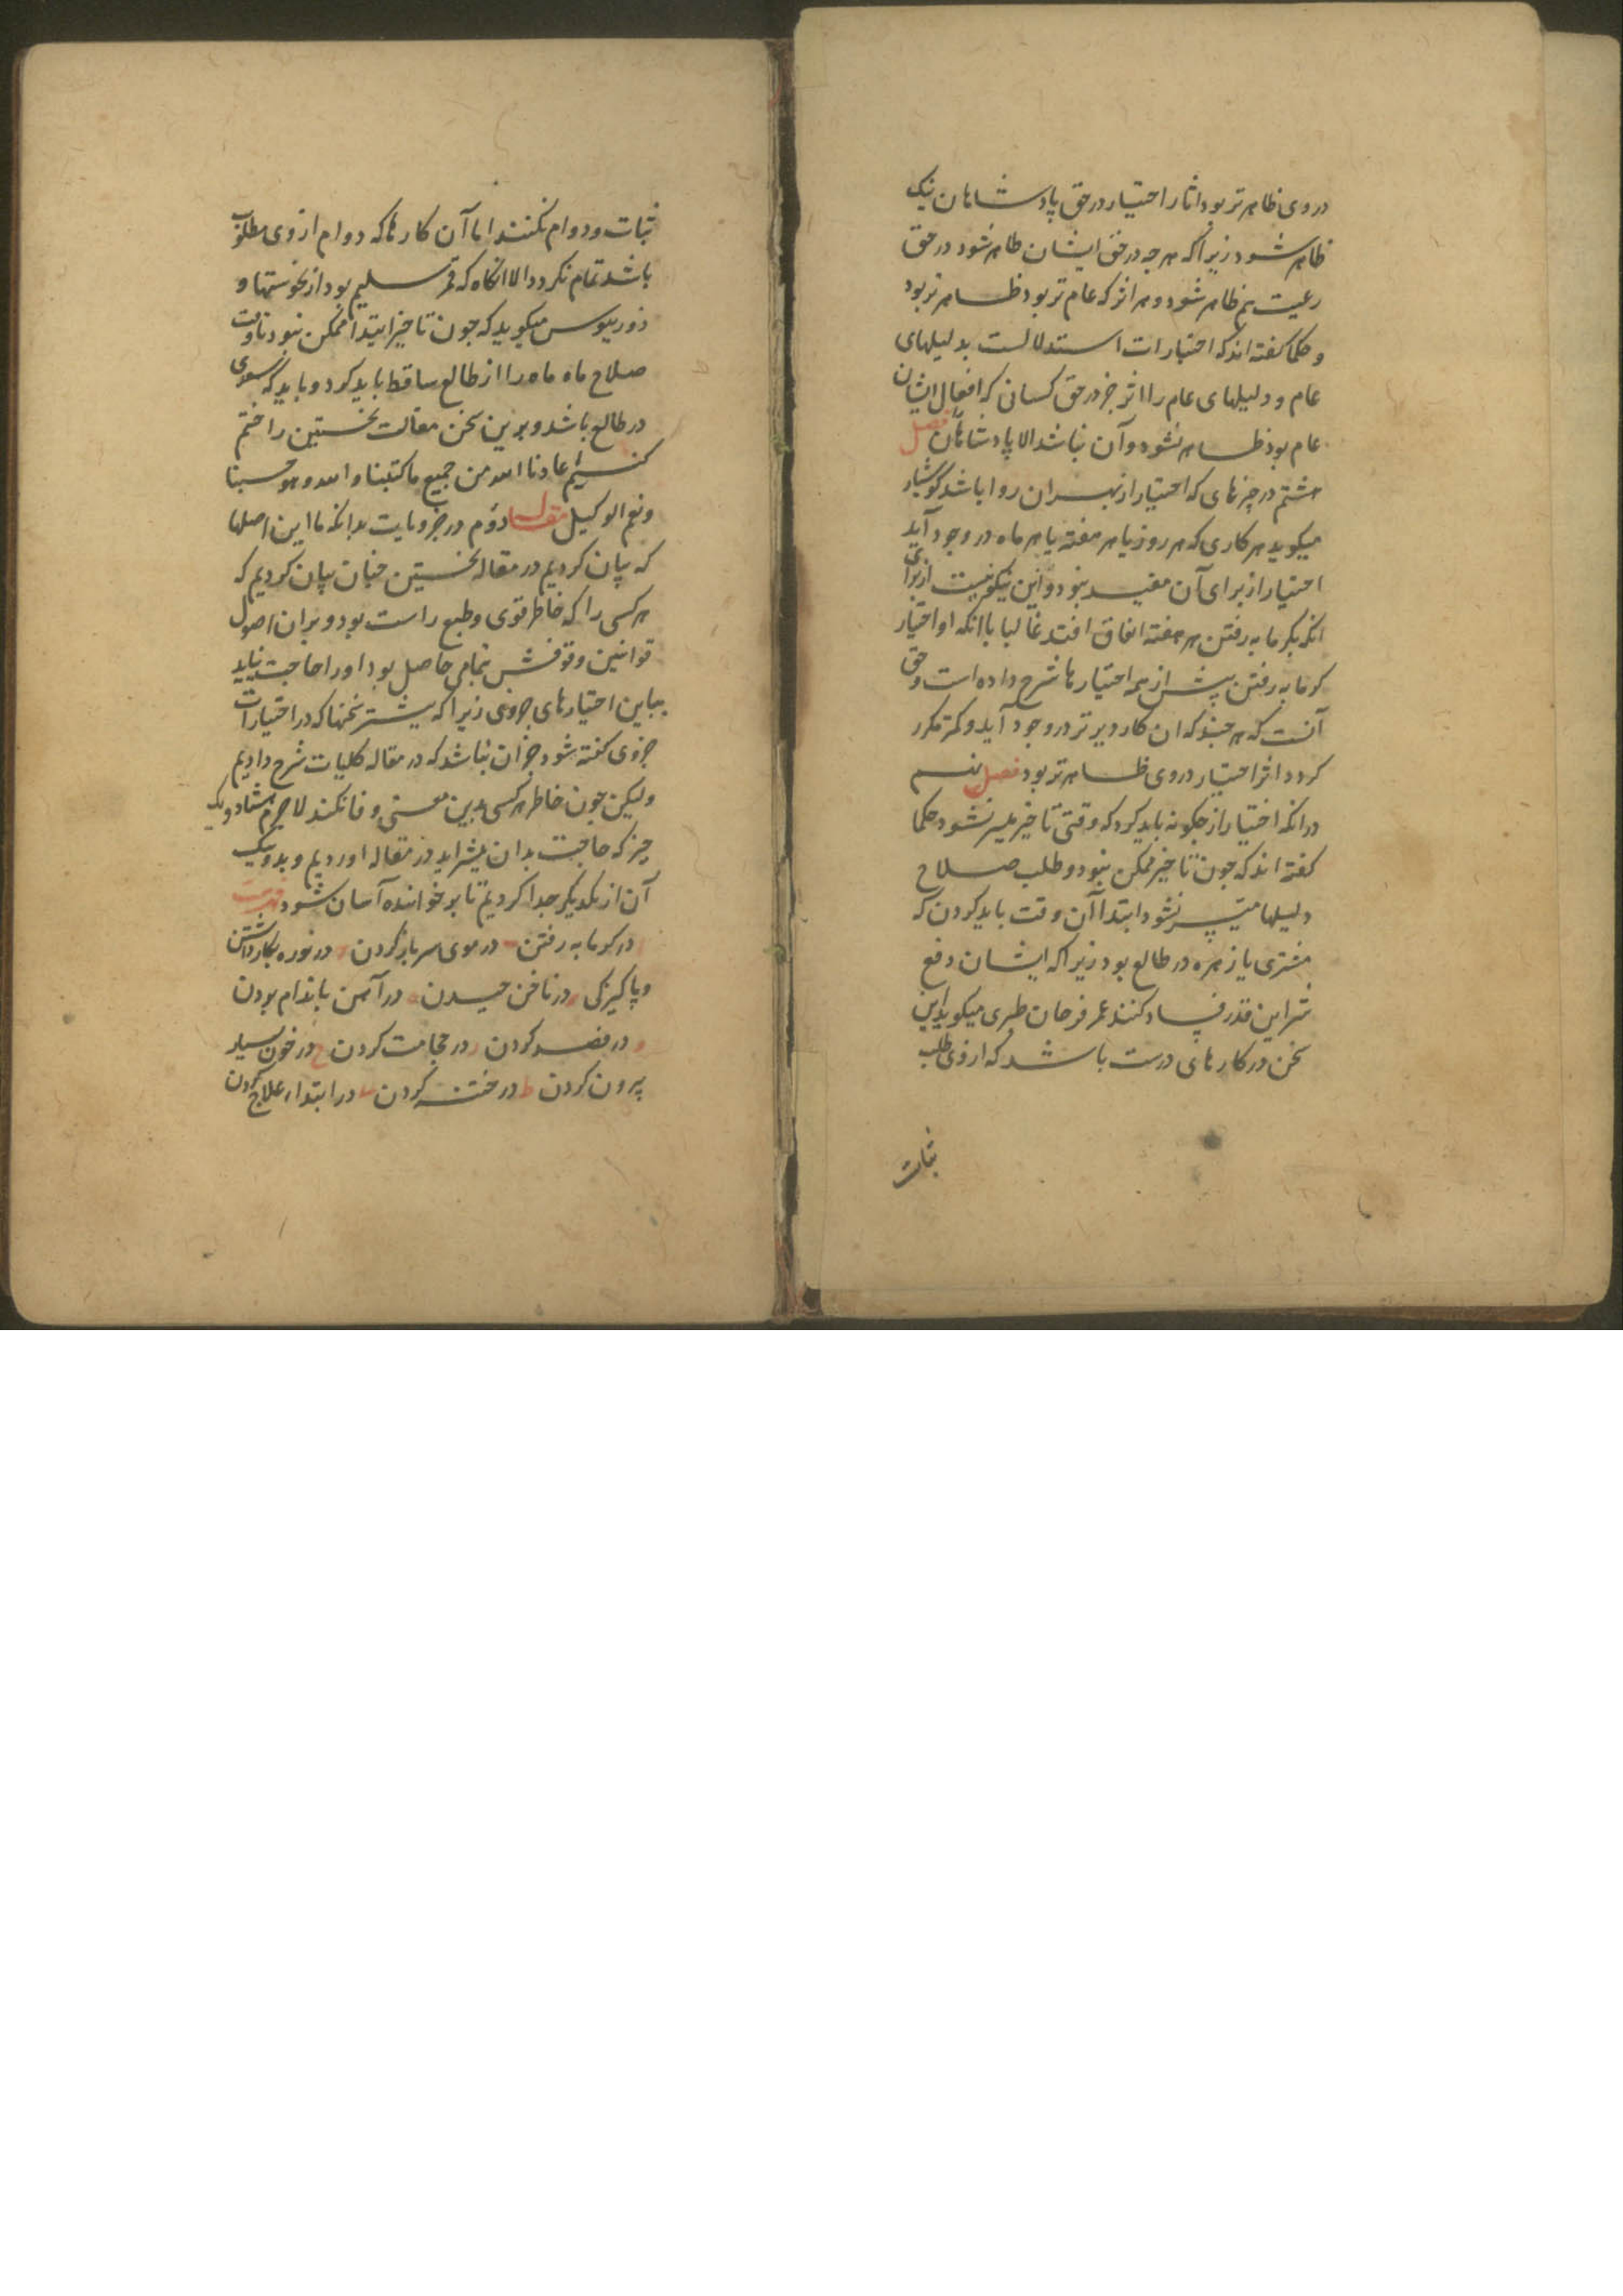 دروی ظاهرتر بود اثار اختیار در حق پادشاهان نیک
ظاهر شود زیراکه هرچه در حق ایشان ظاهر شود در حق
رعیت هم ظاهر شود و هر اثر که عام تر بود ظاهرتر بود
و حکما کفته اند که اختیارات استدلالست بدلیلهای
عام و دلیلهای عام را اثر جز در حق کسانی که افعال ایشان
عام بود ظاهر نشود و آن نباشد الا پادشاهان فصل
هشتم در چیزهای که اختیار از بهر ان روا باشد کوشیار
میکوید هر کاری که هر روز یا هر هفته یا هر ماه در وجود آید
اختیار از برای آن مفید نبود و این نیکو نیست از برای
انکه بکرمابه رفتن هر هفته اتفاق افتد غالبا باانکه او اختیار
کرمابه رفتن پیش از همه اختیارها شرح داده است و حق
آنست که هر چند که ان کار دیرتر در وجود آید و کمتر مکرر
کردد اثر اختیار دروی ظاهرتر بود فصل نهم
در انکه اختیار از چکونه باید کرد که وقتی تاخیر میسر نشود حکما
کفته اند که چون تاخیر ممکن نبود و طلب صلاح
دلیلها میسر نشود ابتدا آن وقت باید کردن که
مشتری یا زهره در طالع بود زیراکه ایشان دفع
شر این قدر فساد کنند عمر فرخان طبری میکوید این
سخن در کارهای درست باشد که از وی طلب
ثبات
ثبات و دوام نکنند اما آن کارها که دوام از وی مطلوب
باشد تمام نکردد الا انکاه که قمر سلیم بود از نحوستها و
ذوریوس میکوید که چون تاخیر ابتدا ممکن نبود تا وقت
صلاح ماه ماه را از طالع ساقط باید کرد و باید که سعدی
در طالع باشد و برین سخن مقالت نخستین را ختم
کنیم اعاذنا الله من جمیع ماکتبنا والله و هو حسبنا
ونعم الوکیل مقاله دوم در جزویات بدانکه ما این اصلها
که بیان کردیم در مقاله نخستین چنان بیان کردیم که
هر کسی را که خاطر قوی و طبع راست بود و بران اصول
قوانین وقوفش بتمامی حاصل بود او را حاجت نیاید
بباین اختیارهای جزوی زیراکه بیشتر سخنها که در اختیارات
جزوی کفته شود جز ان نباشد که در مقاله کلیات شرح دادیم
ولیکن چون خاطر هر کسی بدین معنی وفا نکند لاجرم هشتاد و یک
چیز که حاجت بدان بیشر اید در مقاله اوردیم و بدو یک
آن از یکدیکر جدا کردیم تا بر خواننده آسان شود فهرست
ا در کرمابه رفتن ب در موی سر باز کردن ج در نوره بکار داشتن
و پاکیزکی د در ناخن چیدن ه در آهن باندام بودن
و در فصد کردن ز در حجامت کردن ح در خون بسیار
بیرون کردن ط در ختنه کردن ی در ابتداء علاج کردن